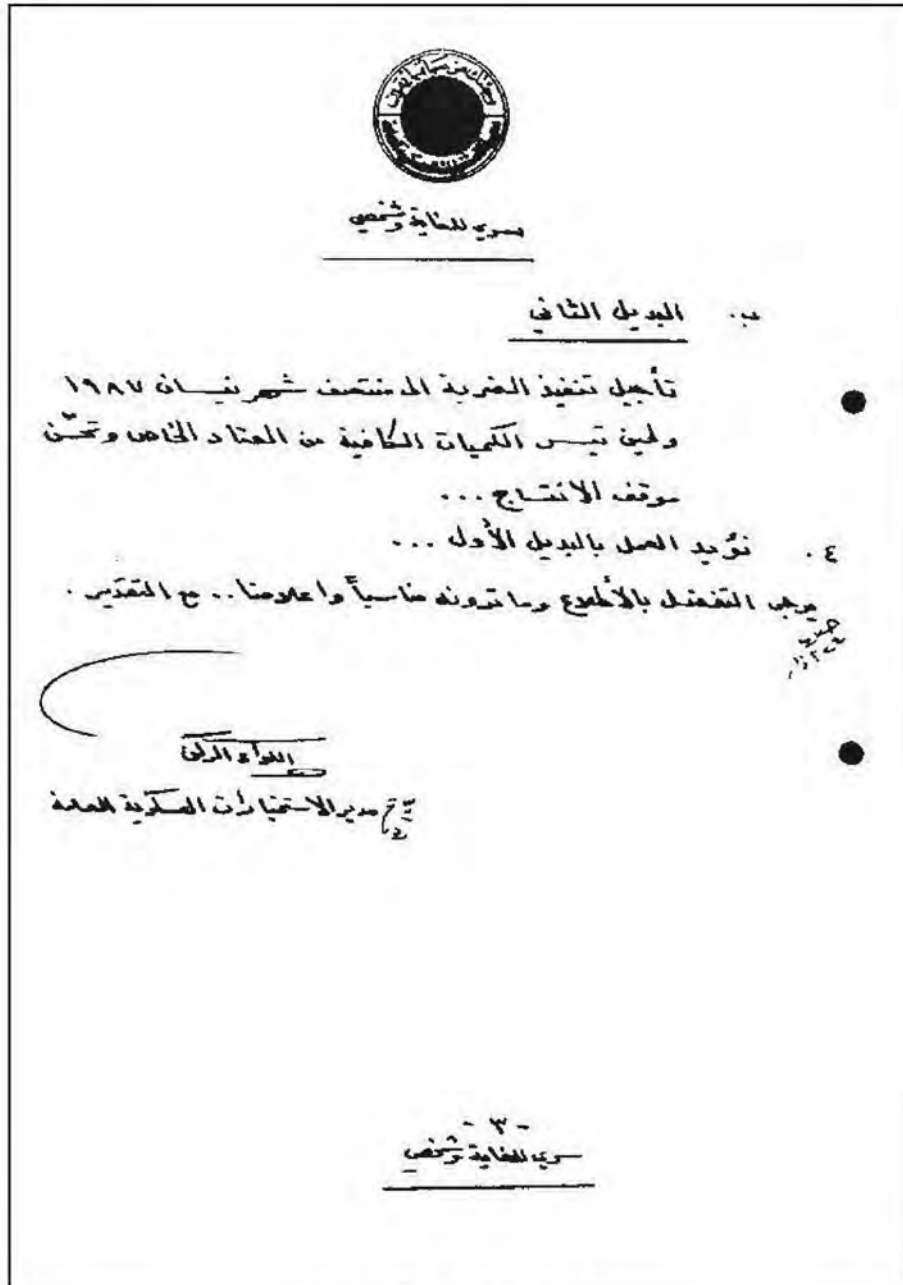 سري للغاية وشخصي
ب. البديل الثاني
تأجيل تنفيذ الضربة الى منتصف شهر نيسان ١٩٨٧
ولحين تيسر الكميات الكافية من العتاد الخاص وتحسّن
موقف الانتاج ...
٤. نؤيد العمل بالبديل الأول ...
يرجى التفضل بالأطلاع وما ترونه مناسباً واعلامنا .. مع التقدير .
اللواء الركن
مدير الاستخبارات العسكرية العامة
- ٣ -
سري للغاية وشخصي